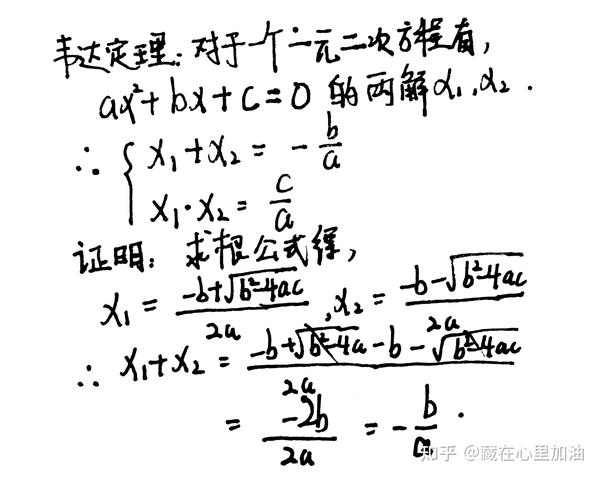 韦达定理:对于一个一元二次方程有,
ax²+bx+c=0 的两解x₁,x₂.
∴ { x₁+x₂ = -b/a
x₁·x₂ = c/a
证明: 求根公式得,
x₁ = (-b+√(b²-4ac))/2a , x₂ = (-b-√(b²-4ac))/2a
∴ x₁+x₂ = (-b+√(b²-4a)-b-√(b²-4ac))/2a
= -2b/2a = -b/a .
知乎 @藏在心里加油